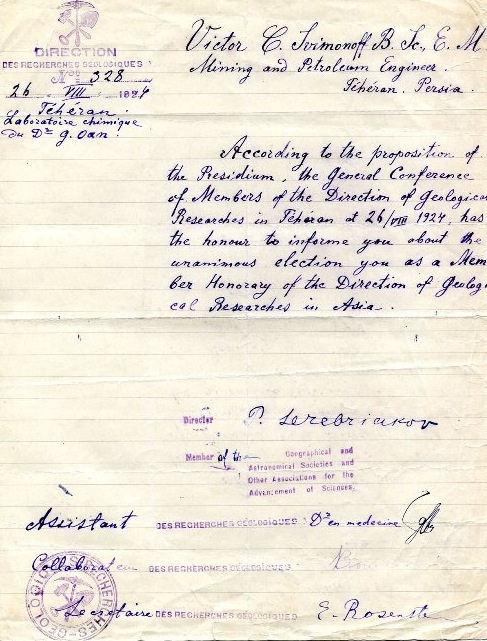 DIRECTION
DES RECHERCHES GÉOLOGIQUES
No 328
26 VIII 1924
Téhéran.
Laboratoire chimique
du Dr G. Oan.
Victor C. Ivimonoff B. Sc., E. M
Mining and Petroleum Engineer.
Téhéran. Persia.
According to the proposition of
the Presidium, the General Conference
of Members of the Direction of Geological
Researches in Téhéran at 26/VIII 1924, has
the honour to informe you about the
unanimous election you as a Mem
ber Honorary of the Direction of Geolog
cal Researches in Asia.
Director P. Serebriakov
Member of the Geographical and
Astronomical Societies and
Other Associations for the
Advancement of Sciences.
Assistant DES RECHERCHES GÉOLOGIQUES Dr en medecine
Collaborateur DES RECHERCHES GÉOLOGIQUES
Secretaire DES RECHERCHES GÉOLOGIQUES E. Rosenste
RECHERCHES-GÉOLOGIQUES